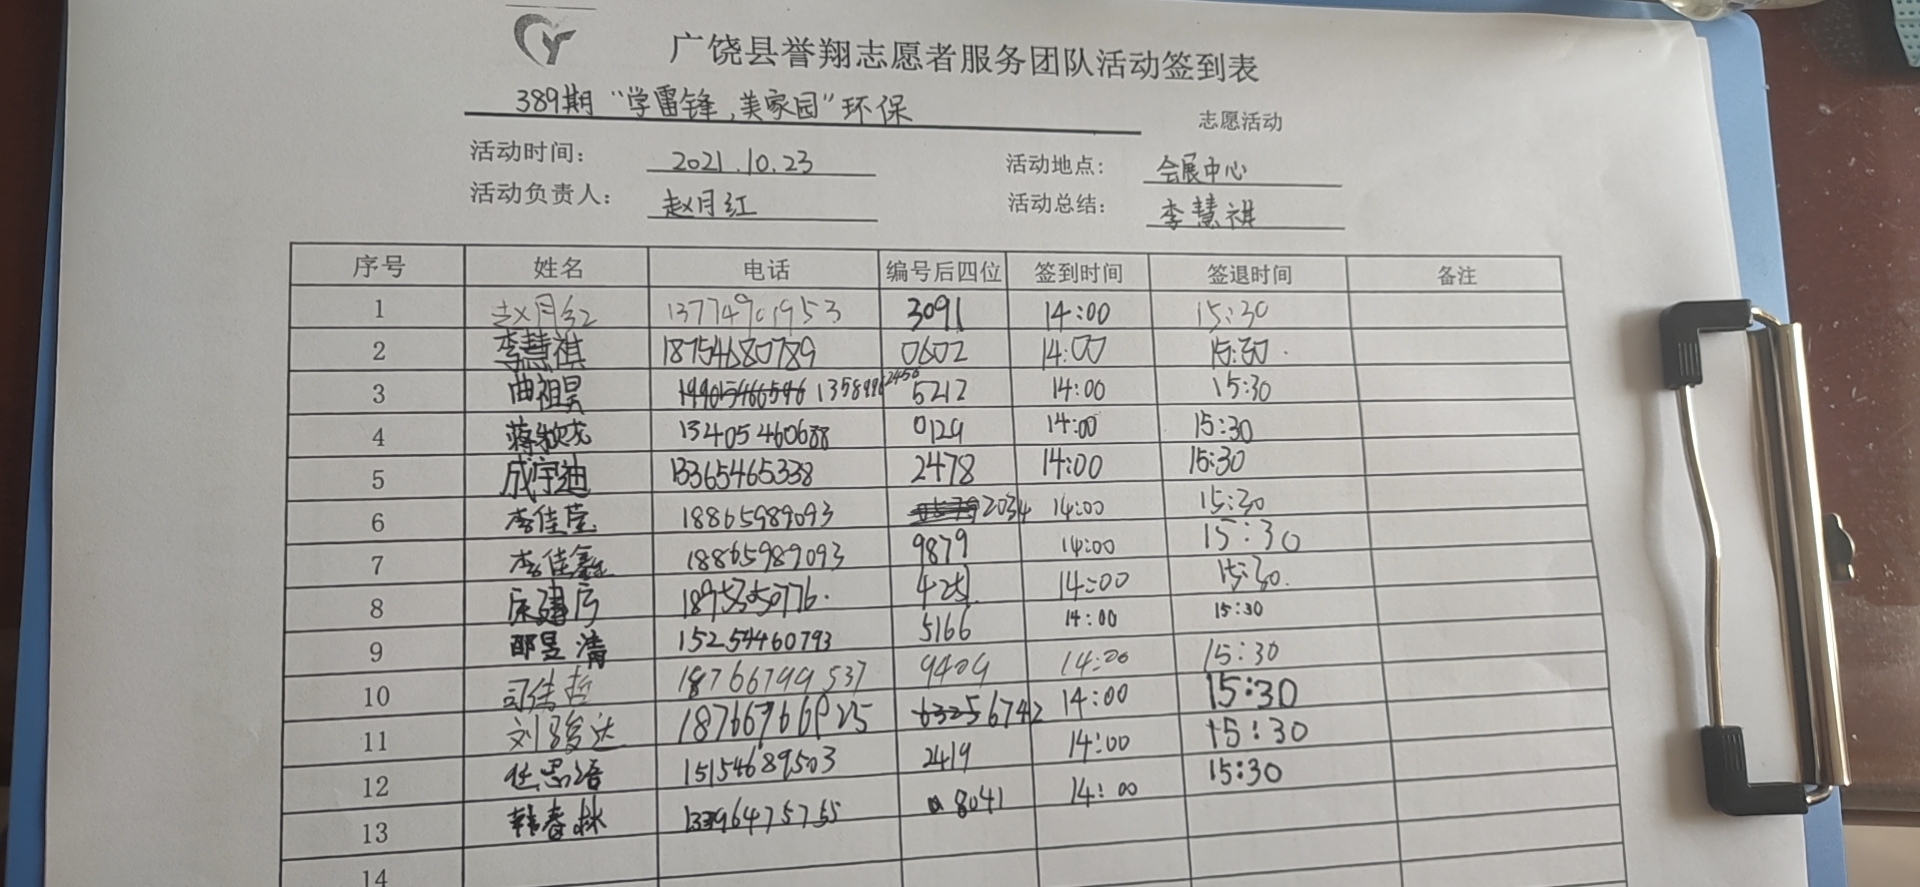 广饶县誉翔志愿者服务团队活动签到表
389期“学雷锋,美家园”环保 志愿活动
活动时间: 2021.10.23 活动地点: 会展中心
活动负责人: 赵月红 活动总结: 李慧祺
序号 姓名 电话 编号后四位 签到时间 签退时间 备注
1 赵月红 13774901953 3091 14:00 15:30
2 李慧祺 18754680789 0602 14:00 15:30
3 曲祖昊 5212 14:00 15:30
4 13405460688 0129 14:00 15:30
5 成宇迪 13365465338 2478 14:00 15:30
6 李佳莹 18865989093 2034 14:00 15:30
7 李佳鑫 18865989093 9879 14:00 15:30
8 18953550776 4251 14:00 15:30
9 邵昱清 15254460793 5166 14:00 15:30
10 司伟哲 18766799537 9409 14:00 15:30
11 刘骏达 6742 14:00 15:30
12 任思语 15154689503 2419 14:00 15:30
13 韩春林 13396475755 8041 14:00 15:30
14